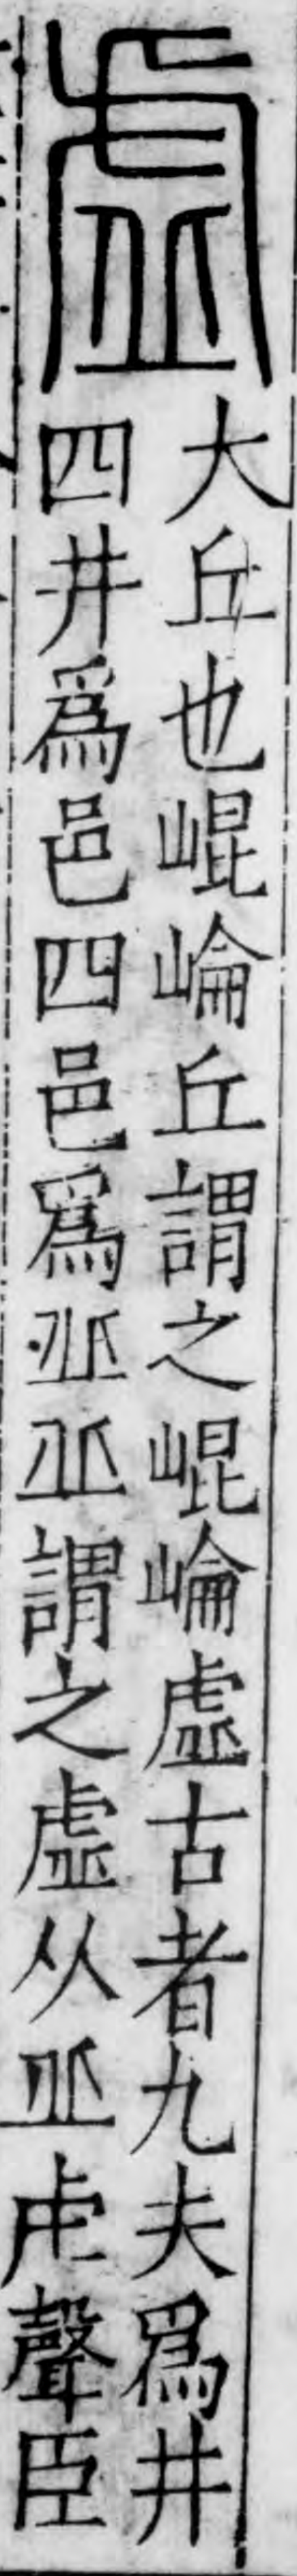 虛
大丘也崐崘丘謂之崐崘虛古者九夫爲井
四井爲邑四邑爲丠丠謂之虛从丠虍聲臣